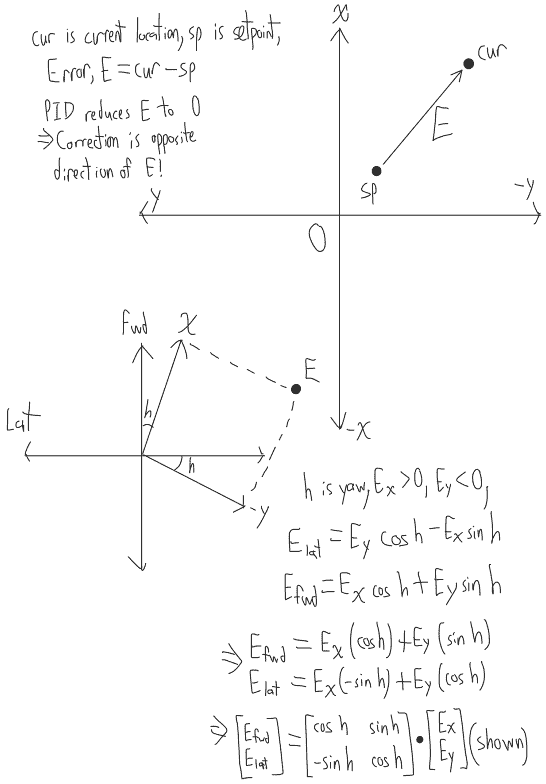 cur is current location, sp is setpoint,
Error, E = cur - sp
PID reduces E to 0
⇒ Correction is opposite
direction of E!
x
cur
E
sp
y
-y
O
-x
Fwd
x
E
h
Lat
h
-y
h is yaw, Ex>0, Ey<0,
Elat = Ey cos h - Ex sin h
Efwd = Ex cos h + Ey sin h
⇒ Efwd = Ex (cos h) + Ey (sin h)
Elat = Ex (-sin h) + Ey (cos h)
⇒ [Efwd Elat] = [cos h sin h -sin h cos h] • [Ex Ey] (shown)